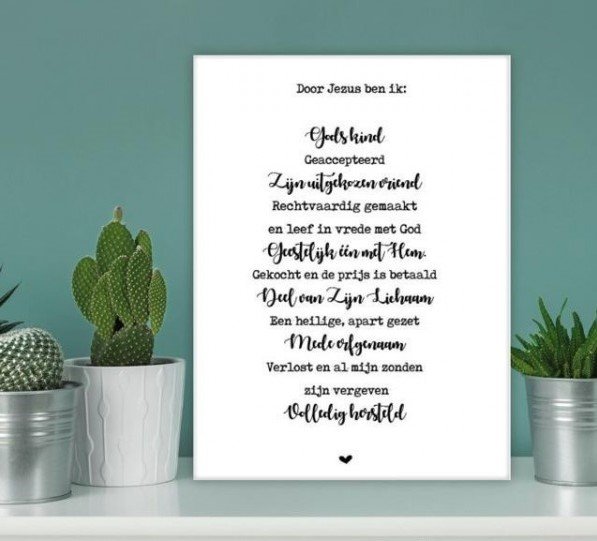 Door Jezus ben ik:
Gods kind
Geaccepteerd
Zijn uitgekozen vriend
Rechtvaardig gemaakt
en leef in vrede met God
Geestelijk één met Hem.
Gekocht en de prijs is betaald
Deel van Zijn Lichaam
Een heilige, apart gezet
Mede erfgenaam
Verlost en al mijn zonden
zijn vergeven
Volledig hersteld